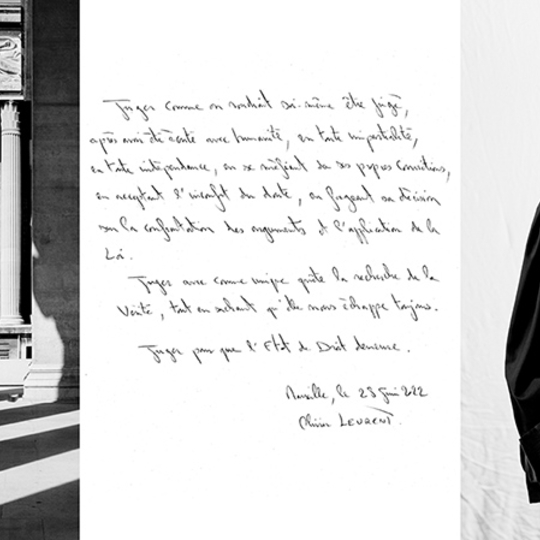 Juger comme on voudrait soi-même être jugé,
après avoir été écouté avec humanité, en toute impartialité,
en toute indépendance, en se méfiant de ses propres convictions,
en acceptant l'inconfort du doute, en forgeant sa décision
sur la confrontation des arguments et l'application de la
Loi.
Juger avec comme unique quête la recherche de la
Vérité, tout en sachant qu'elle nous échappe toujours.
Juger pour que l'Etat de Droit demeure.
Marseille, le 28 juin 2022
Olivier LEURENT